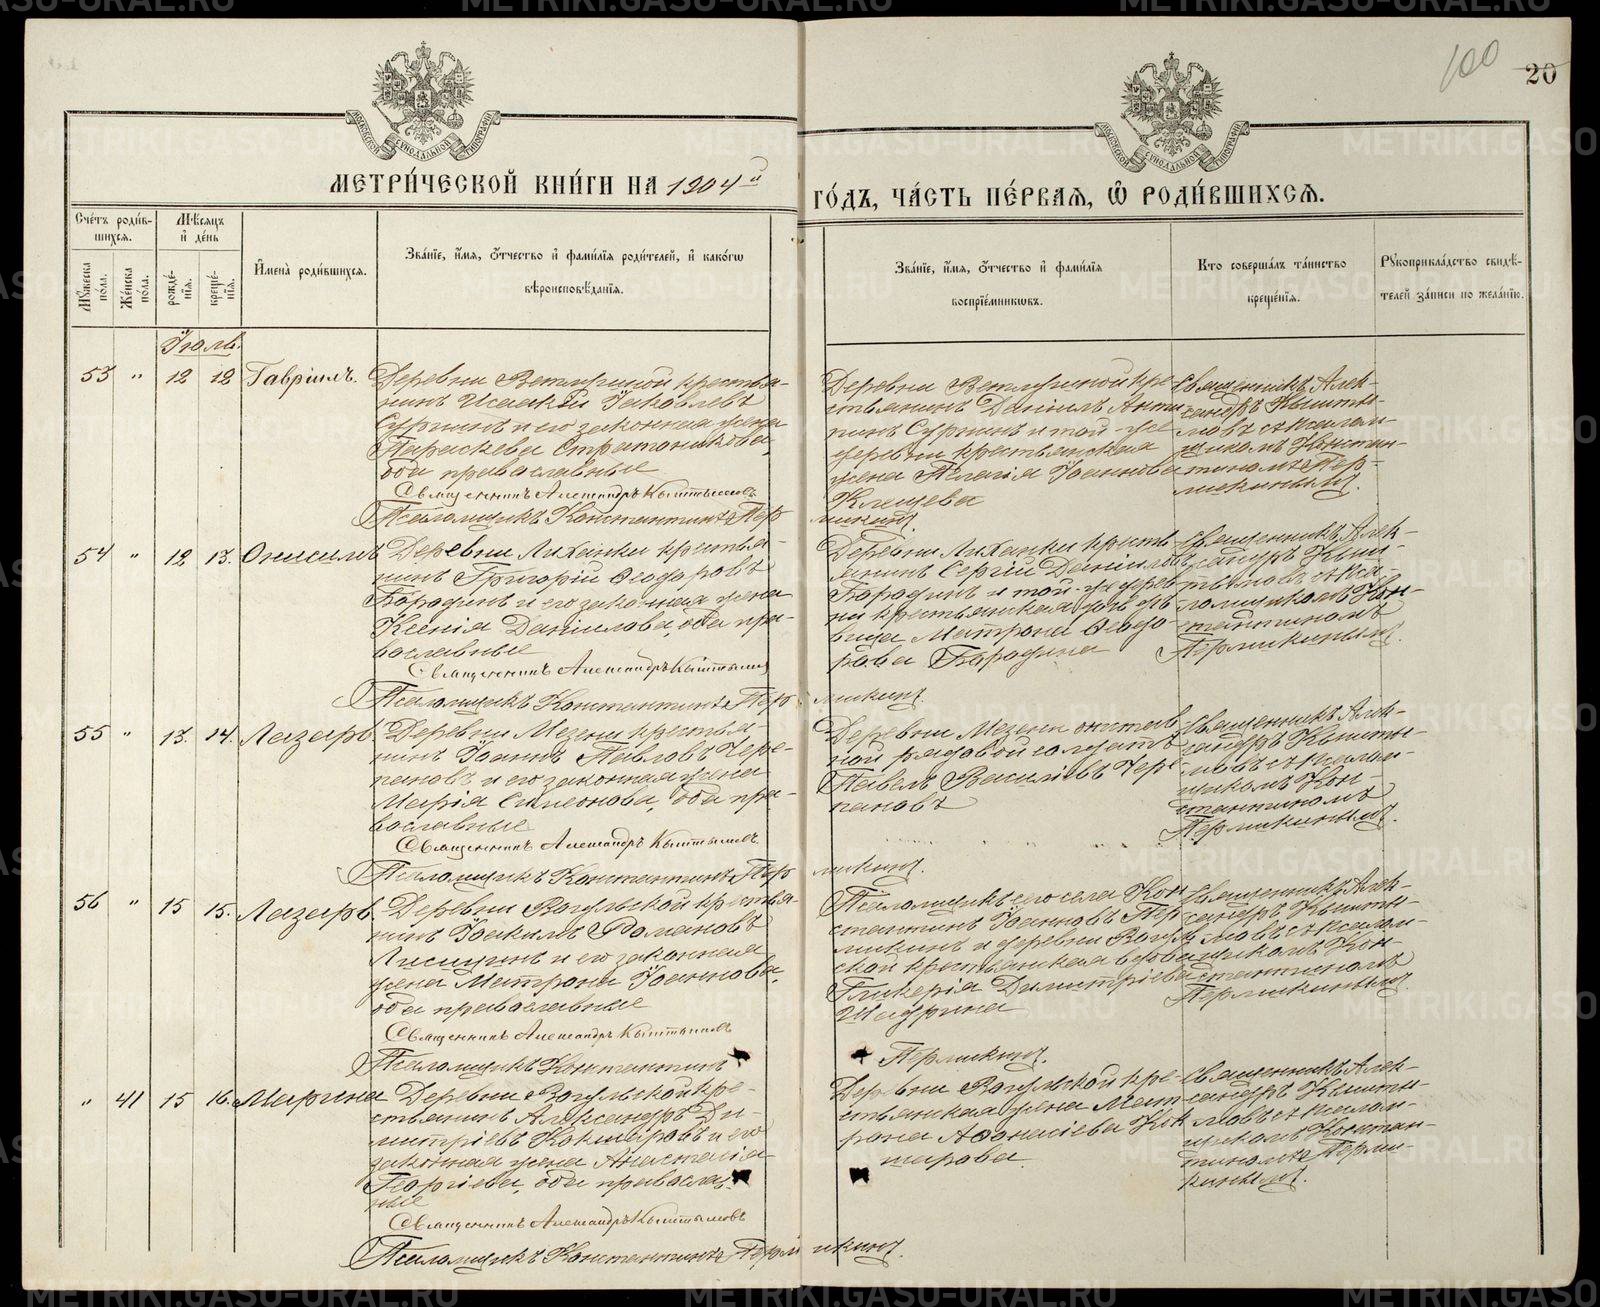 100
20
МОСКОВСКОЙ СУНОДАЛЬНОЙ ТИПОГРАФІИ
МОСКОВСКОЙ СУНОДАЛЬНОЙ ТИПОГРАФІИ
МЕТРИ́ЧЕСКОЙ КНИ́ГИ НА 1904й ГО́ДЪ, ЧА́СТЬ ПЕ́РВАѦ, Ѡ РОДИ́ВШИХСѦ.
Сче́тъ роди́в-
шихсѧ.
Мꙋ́жеска по́ла.
Же́нска по́ла.
Мѣ́сѧцъ
и҆ де́нь
рожде́-
нїѧ.
креще́-
нїѧ.
И҆мена̀ роди́вшихсѧ.
Зва́нїе, и҆́мѧ, ѻ҆́тчество и҆ фами́лїѧ роди́телей, и҆ како́гѡ
вѣроисповѣ́данїѧ.
Зва́нїе, и҆́мѧ, ѻ҆́тчество и҆ фами́лїѧ
воспрїе́мникѡвъ.
Кто соверша́лъ та́инство
креще́нїѧ.
Рꙋкоприкла́дство свидѣ́-
телей за́писи по жела́нїю.
Іюль.
53 " 12 12 Гавріилъ.
Деревни Ветлугиной крестья-
нинъ Исаакій Іаковлевъ
Сурнинъ и его законная жена
Параскева Стратоникова,
оба православные
Священникъ Александръ Кыштымовъ
Псаломщикъ Константинъ Пермикинъ.
Деревни Ветлугиной кре-
стьянинъ Даніилъ Анти
пинъ Сурнинъ и той-же
деревни крестьянская
жена Пелагія Іоаннова
Клещева
Священникъ Алек-
сандръ Кышты-
мовъ съ псалом-
щикомъ Констан-
тиномъ Пер-
микинымъ.
54 " 12 13. Онисимъ
Деревни Лиханки крестья-
нинъ Григорій Ѳеодоровъ
Бородинъ и его законная жена
Ксенія Даніилова, оба пра-
вославные
Священникъ Александръ Кыштымовъ
Псаломщикъ Константинъ Пермикинъ.
Деревни Лиханки кресть-
янинъ Сергій Даніиловъ
Бородинъ и той-же дерев-
ни крестьянская дѣ-
вица Матрона Ѳеодо-
рова Бородина
Священникъ Алек-
сандръ Кыш-
тымовъ съ пса-
ломщикомъ Кон-
стантиномъ
Пермикинымъ.
55 " 13. 14. Лазарь
Деревни Мезени крестья
нинъ Іоаннъ Павловъ Чере-
пановъ и его законная жена
Марія Симеонова, оба пра-
вославные
Священникъ Александръ Кыштымовъ.
Псаломщикъ Константинъ Пермикинъ.
Деревни Мезени отстав-
ной рядовой солдатъ
Павелъ Василіевъ Чере-
пановъ
Священникъ Алек-
сандръ Кышты-
мовъ съ псалом-
щикомъ Кон-
стантиномъ
Пермикинымъ.
56 " 15 15. Лазарь.
Деревни Вогульской крестья-
нинъ Іоакимъ Романовъ
Лисицинъ и его законная
жена Матрона Іоаннова,
оба православные
Священникъ Александръ Кыштымовъ
Псаломщикъ Константинъ Пермикинъ.
Псаломщикъ сего села Кон
стантинъ Іоанновъ Пер
микинъ и деревни Вогуль
ской крестьянская вдова
Гликерія Димитріева
Шадрина
Священникъ Алек-
сандръ Кышты-
мовъ съ псалом-
щикомъ Кон-
стантиномъ
Пермикинымъ.
" 41 15 16. Марина
Деревни Вогульской кре-
стьянинъ Александръ Ди-
митріевъ Кокшаровъ и его
законная жена Анастасія
Георгіева, оба православ-
ные
Священникъ Александръ Кыштымовъ
Псаломщикъ Константинъ Пермикинъ.
Деревни Вогульской кре-
стьянская жена Мат
рона Аѳонасіева Кок
шарова.
Священникъ Алек-
сандръ Кышты-
мовъ съ псалом-
щикомъ Констан-
тиномъ Перми-
кинымъ.
METRIKI.GASO-URAL.RU